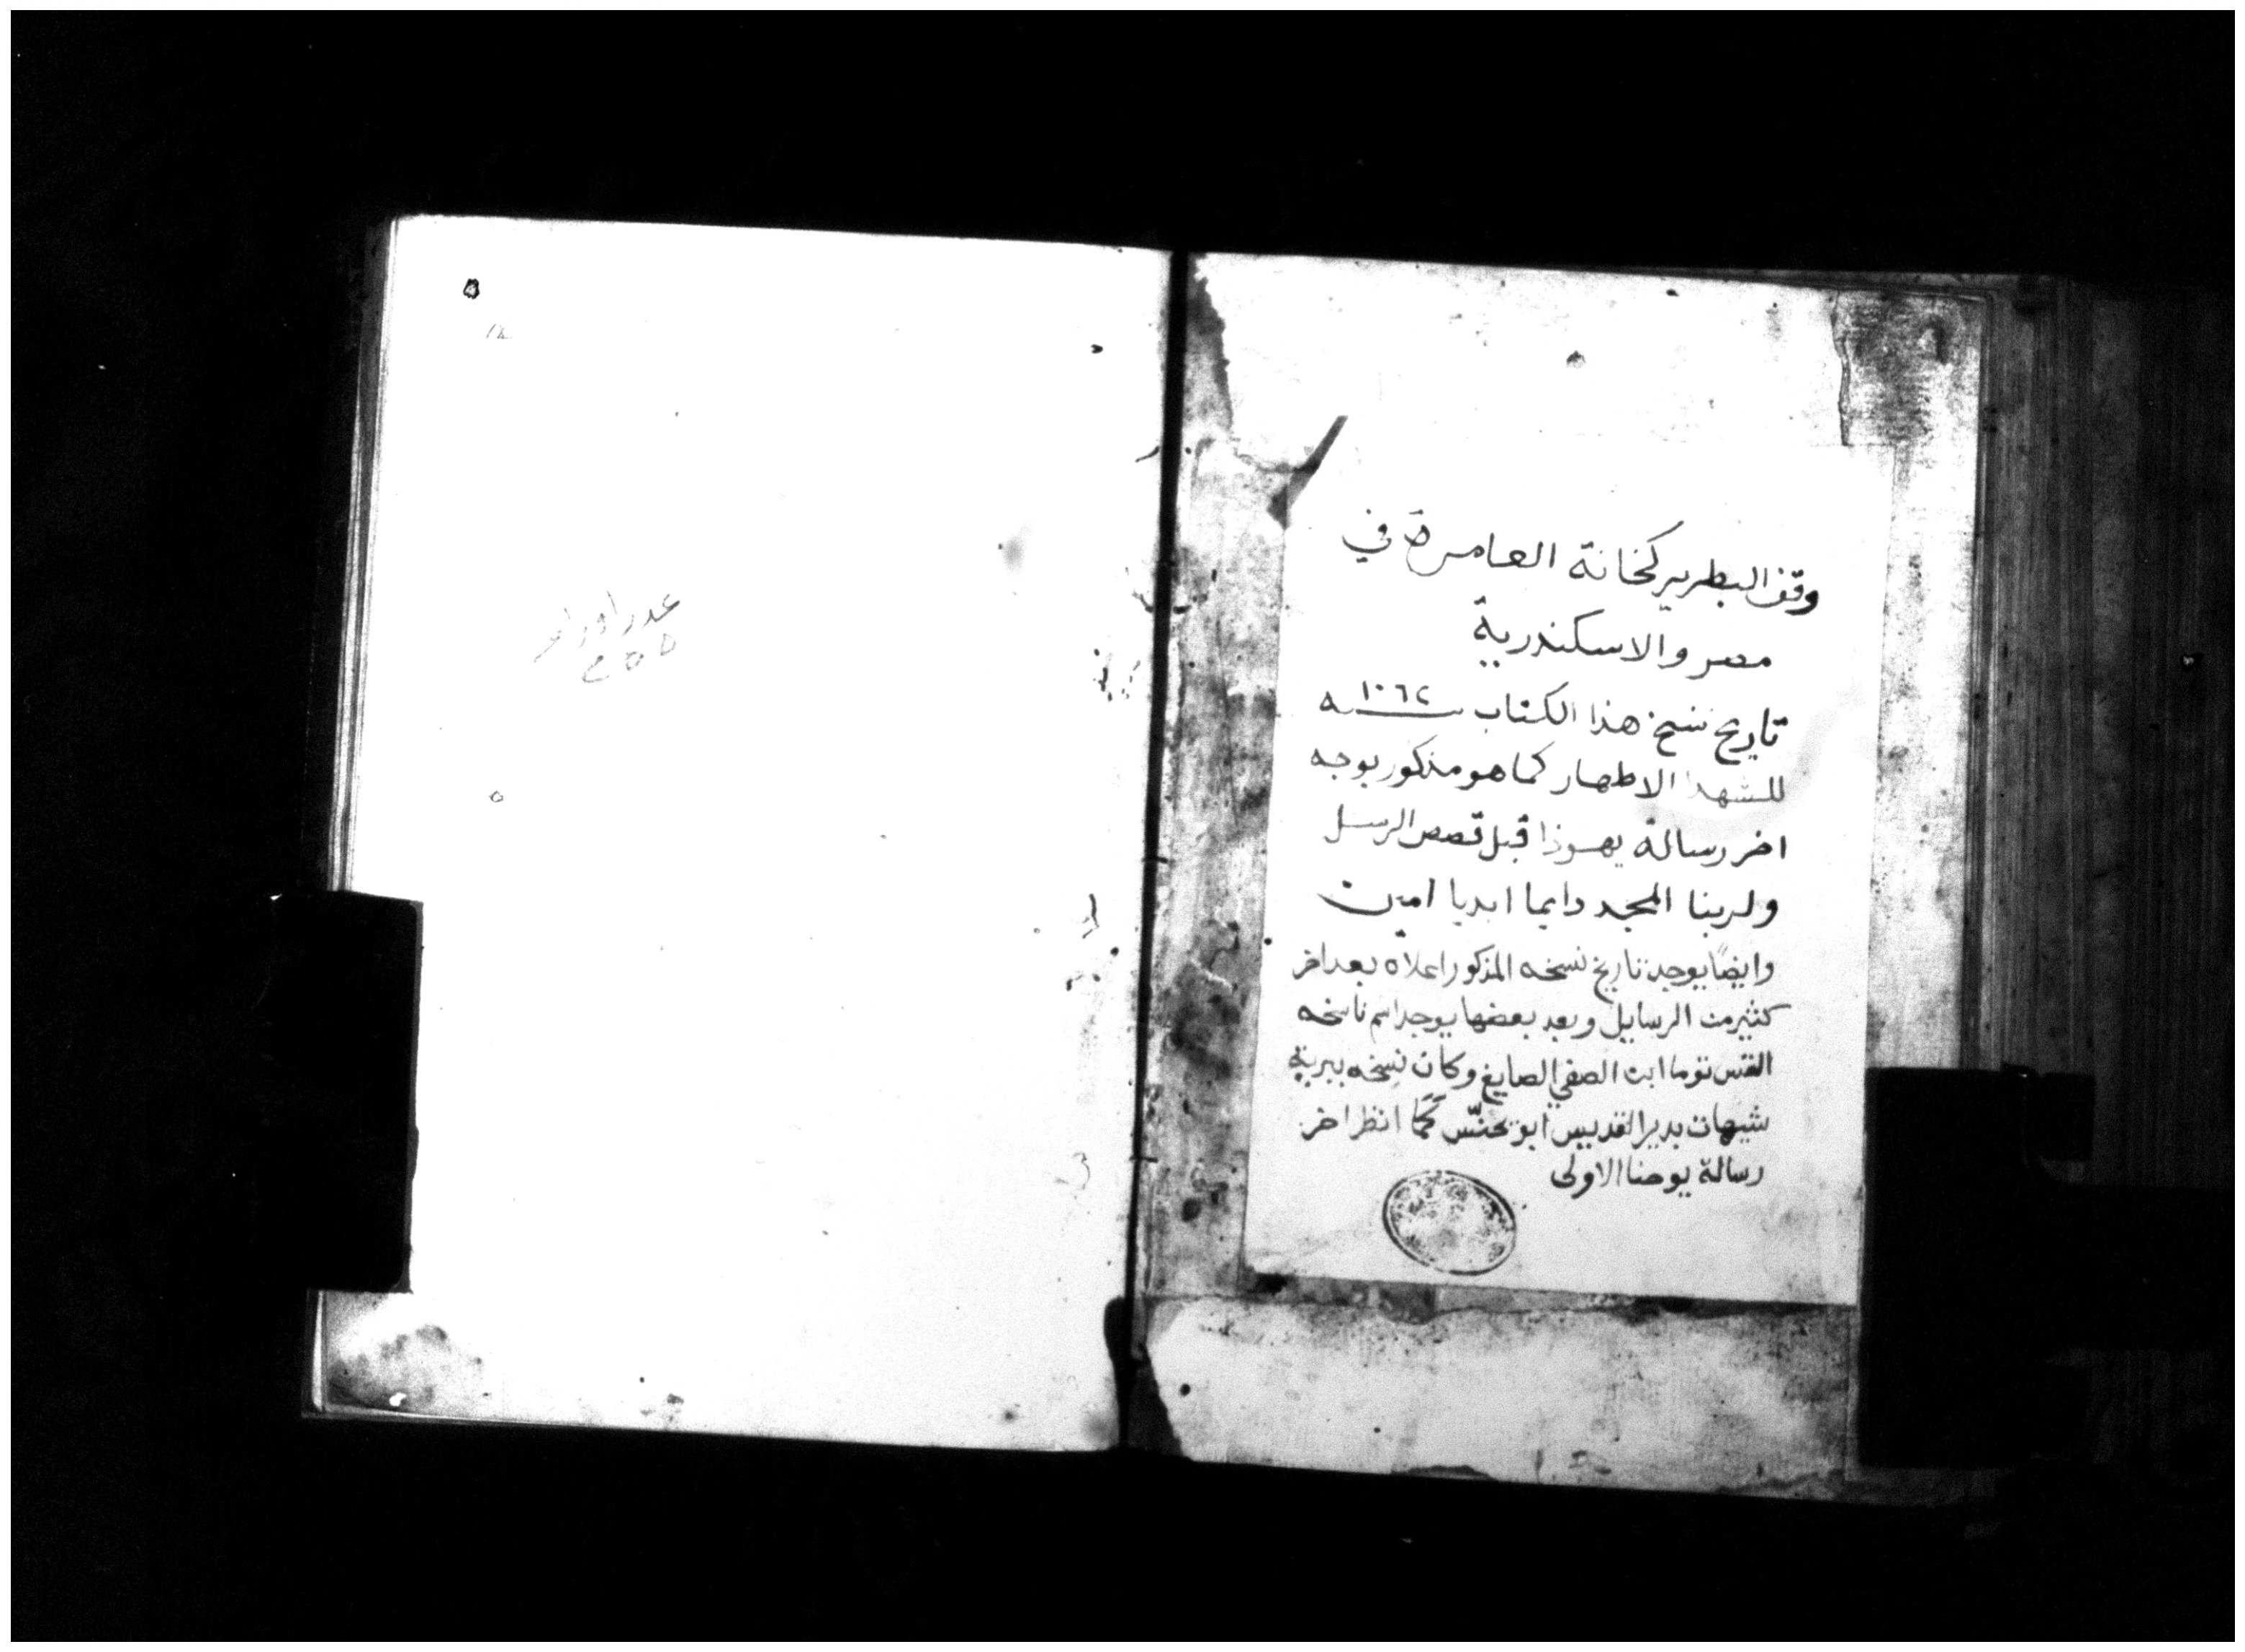 وقف البطريركخانة العامرة في
مصر والاسكندرية
تاريخ نسخ هذا الكتاب سنه ١٠٦٢
للشهدا الاطهار كما هو مذكور بوجه
اخر رسالة يهوذا قبل قصص الرسل
ولربنا المجد دايما ابديا امين
وايضًا يوجد تاريخ نسخه المذكور اعلاه بعد اخر
كثير من الرسايل وبعد بعضها يوجد اسم ناسخه
القس توما ابن الصفي الصايغ وكان نسخه ببرية
شيهات بدير القديس ابو يحنّس كَمَا انظر اخر
رسالة يوحنا الاولى
عدد اوراقه